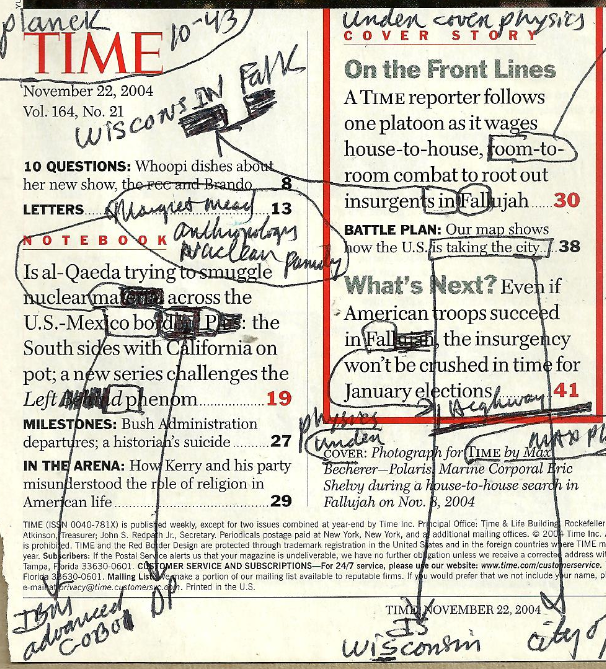 planck
10-43
TIME
November 22, 2004
Vol. 164, No. 21
WISCONSIN Falk
10 QUESTIONS: Whoopi dishes about
her new show, the FCC and Brando 8
LETTERS 13
Margret mead
anthropology
Nuclear family
NOTEBOOK
Is al-Qaeda trying to smuggle
nuclear material across the
U.S.-Mexico border? Plus: the
South sides with California on
pot; a new series challenges the
Left Behind phenom 19
MILESTONES: Bush Administration
departures; a historian's suicide 27
IN THE ARENA: How Kerry and his party
misunderstood the role of religion in
American life 29
under cover physics
COVER STORY
On the Front Lines
A TIME reporter follows
one platoon as it wages
house-to-house, room-to-
room combat to root out
insurgents in Fallujah 30
BATTLE PLAN: Our map shows
how the U.S. is taking the city 38
What's Next? Even if
American troops succeed
in Fallujah, the insurgency
won't be crushed in time for
January elections 41
highway
physics
under
MAX Pl
COVER: Photograph for TIME by Max
Becherer—Polaris. Marine Corporal Eric
Shelvy during a house-to-house search in
Fallujah on Nov. 8, 2004
TIME (ISSN 0040-781X) is published weekly, except for two issues combined at year-end by Time Inc. Principal Office: Time & Life Building, Rockefeller
Atkinson, Treasurer; John S. Redpath Jr., Secretary. Periodicals postage paid at New York, New York, and additional mailing offices. © 2004 Time Inc.
is prohibited. TIME and the Red Border Design are protected through trademark registration in the United States and in the foreign countries where TIME m
year. Subscribers: If the Postal Service alerts us that your magazine is undeliverable, we have no further obligation unless we receive a corrected address wit
Tampa, Florida 33630-0601. CUSTOMER SERVICE AND SUBSCRIPTIONS—For 24/7 service, please use our website: www.time.com/customerservice.
Florida 33630-0601. Mailing List: make a portion of our mailing list available to reputable firms. If you would prefer that we not include your name, p
e-mail privacy@time.customersvc.com. Printed in the U.S.
TIME, NOVEMBER 22, 2004
IBM
advanced
COBOL
DP
IS
Wisconsin
city of